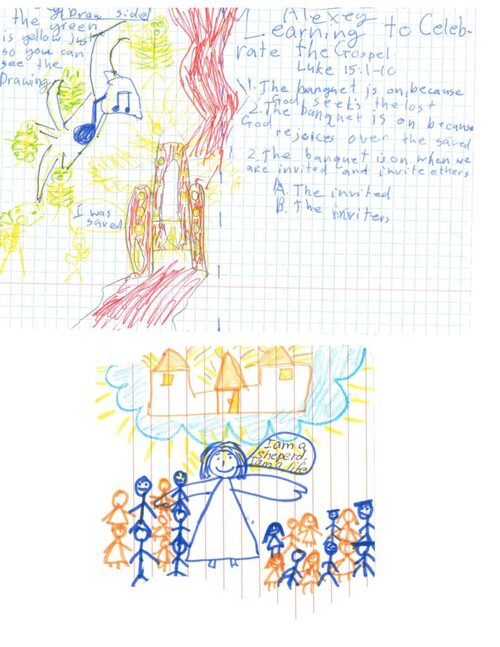 Draw side
the green
is yellow Just
so you can
see the
Drawing.
I was
saved
Alexey
Learning to Celeb-
rate the Gospel.
Luke 15:1-10
1. The banquet is on, because
God seeks the lost
2. The banquet is on because
God rejoices over the saved
2. The banquet is on when we
are invited and invite others
A. The invited
B. The inviters
I am a
sheperd.
I am a life